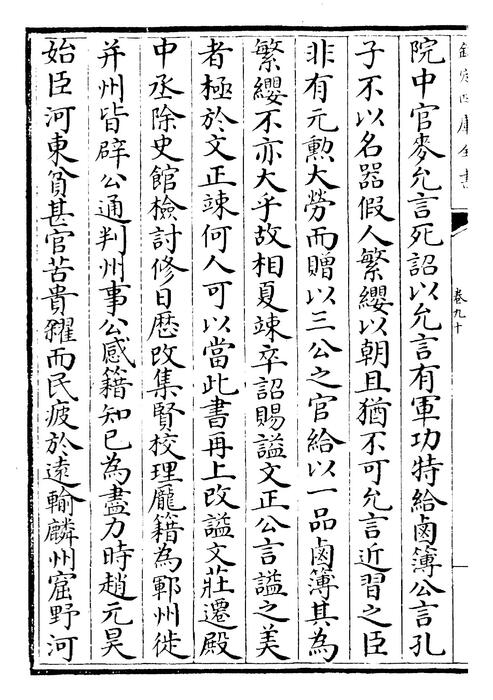 欽定四庫全書
卷九十
院中官麥允言死詔以允言有軍功特給鹵簿公言孔
子不以名器假人繁纓以朝且猶不可允言近習之臣
非有元勲大勞而贈以三公之官給以一品鹵簿其為
繁纓不亦大乎故相夏竦卒詔賜謚文正公言謚之美
者極於文正竦何人可以當此書再上改謚文莊遷殿
中丞除史館檢討修日歷改集賢校理龐籍為鄆州徙
并州皆辟公通判州事公感籍知己為盡力時趙元昊
始臣河東貧甚官苦貴糴而民疲於逺輸麟州窟野河